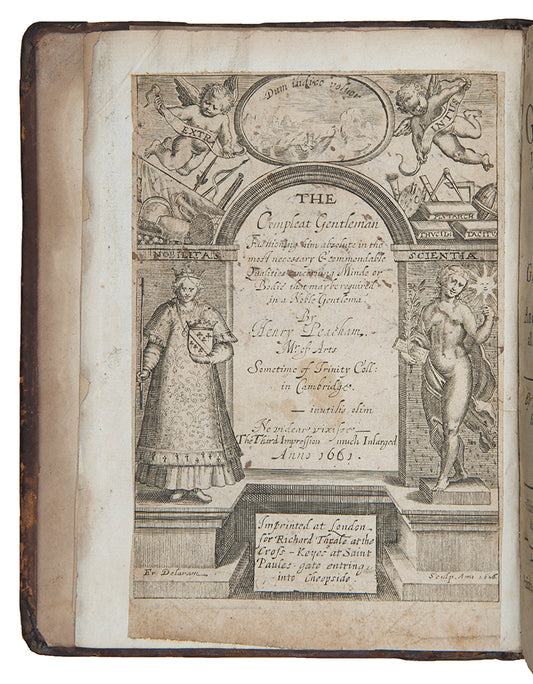 Dum indico
EXTRA
INTUS
PLUTARCH
TACITUS
NOBILITAS
SCIENTIA
THE
Compleat Gentleman
Fashioning him absolute in the
most necessary & commendable
Qualities concerning Minde or
Bodie that may be required
in a Noble Gentleman
By
Henry Peacham
Mr. of Arts
Sometime of Trinity Coll:
in Cambridge.
— inutilis olim
Ne videar vixisse —
The Third Impression much Inlarged
Anno 1661.
Imprinted at London
for Richard Thrale at the
Cross-Keyes at Saint
Paules gate entring
into Cheepside
Fr Delaram
Sculp. Ano 1626